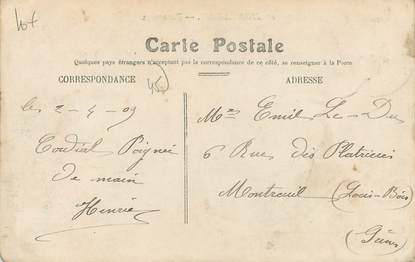 10f
Carte Postale
Quelques pays étrangers n'acceptant pas la correspondance de ce côté, se renseigner à la Poste
CORRESPONDANCE
ADRESSE
45
les 2-4-09
Cordial Poignée
de main
Henri
Emil Le-Duc
6 Rue dès Platrieres
Montreuil (Sous-Bois
(Seine)